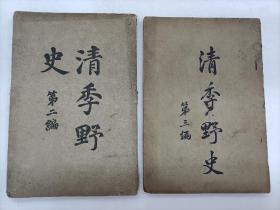 清季野史
第二編
清季野史
第三編